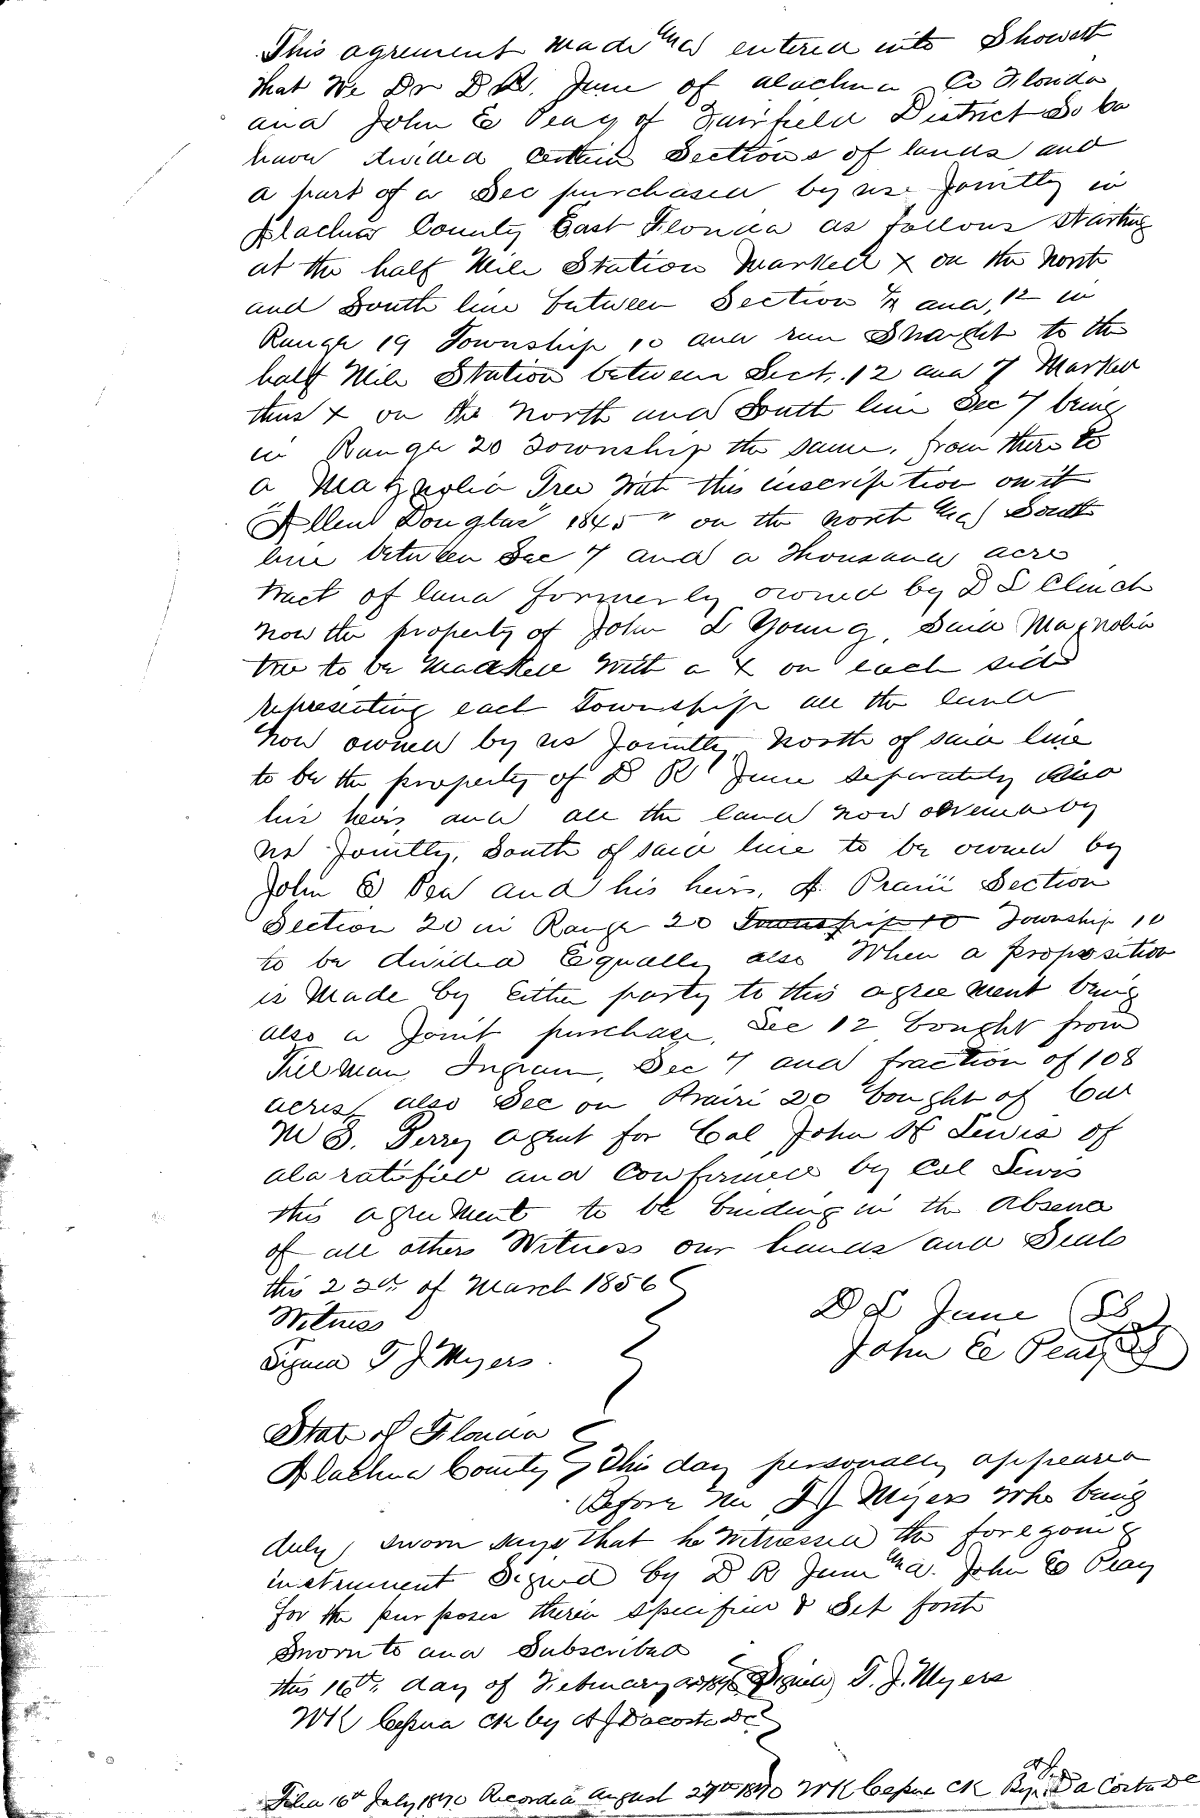 This agreement made and entered into Showeth
that We Dr D R. June of Alachua Co Florida
and John E Peay of Fairfield District So Ca
have divided certain Sections of lands and
a part of a Sec purchased by us Jointly in
Alachua County East Florida as follows starting
at the half Mile Station Marked X on the North
and South line between Section and, 12 in
Range 19 Township 10 and run Straight to the
half Mile Station between Sect. 12 and 7 Marked
thus X on the North and South line Sec 7 being
in Range 20 Township the same. from there to
a Magnolia Tree With this inscription on it
"Allen Douglas" 1845" on the north and South
line between Sec 7 and a thousand acre
tract of land formerly owned by D L Clinch
now the property of John L Young, Said Magnolia
tree to be Marked With a X on each side
representing each Township all the land
now owned by us Jointly, North of said line
to be the property of D R June seperately also
his heirs and all the land now owned by
us Jointly, South of said line to be owned by
John E Pea and his heirs. A Prarii Section
Section 20 in Range 20 Township 10 Township 10
to be divided Equally also When a proposition
is Made by Either party to this agreement being
also a Joint purchase, Sec 12 bought from
Tillman Ingram, Sec 7 and fraction of 108
acres, also Sec on Prairi 20 bought of
M S. Perry agent for Col John W Lewis of
ala ratified and Confirmed by Col Lewis
this agreement to be binding in the absence
of all others Witness our hands and Seals
this 22nd of March 1856
Witness D L June (SS)
Signed T J Myers. John E Peay (SS)
State of Florida
Alachua County This day personally appeared
Before Me, T J Myers Who being
duly sworn says that he Witnessed the foregoing
instrument Signed by D R June and. John E Peay
for the purposes therin specified & Set forth
Sworn to and Subscribed
this 16th, day of February (Signed) T. J. Myers
WK Cessna Ck by A J Dacosta DC
Filed 16th July 1870 Recorded August 27th 1870 WK Cessna CK By A J. Da Costa DC